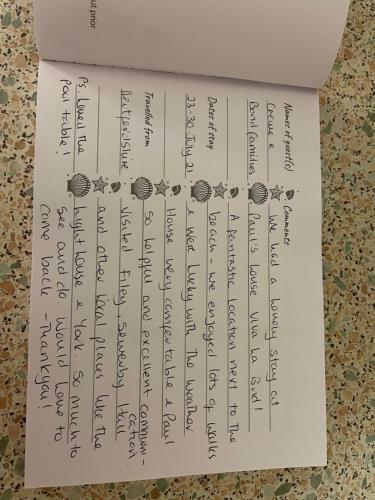 out prior
Names of guest(s)
Crewe &
Bond families
Dates of stay
23-30 July 21
Travelled from
Hertfordshire
Ps. Loved the
pool table!
Comments
We had a lovely stay at
Paul's house Viva La Bird!
A fantastic location next to the
beach - we enjoyed lots of walks
& were lucky with the weather
House very comfortable & Paul
so helpful and excellent communi-
cation.
Visited Filey, Sewerby Hall
and other local places like the
lighthouse & York. So much to
see and do would love to
come back - Thankyou!